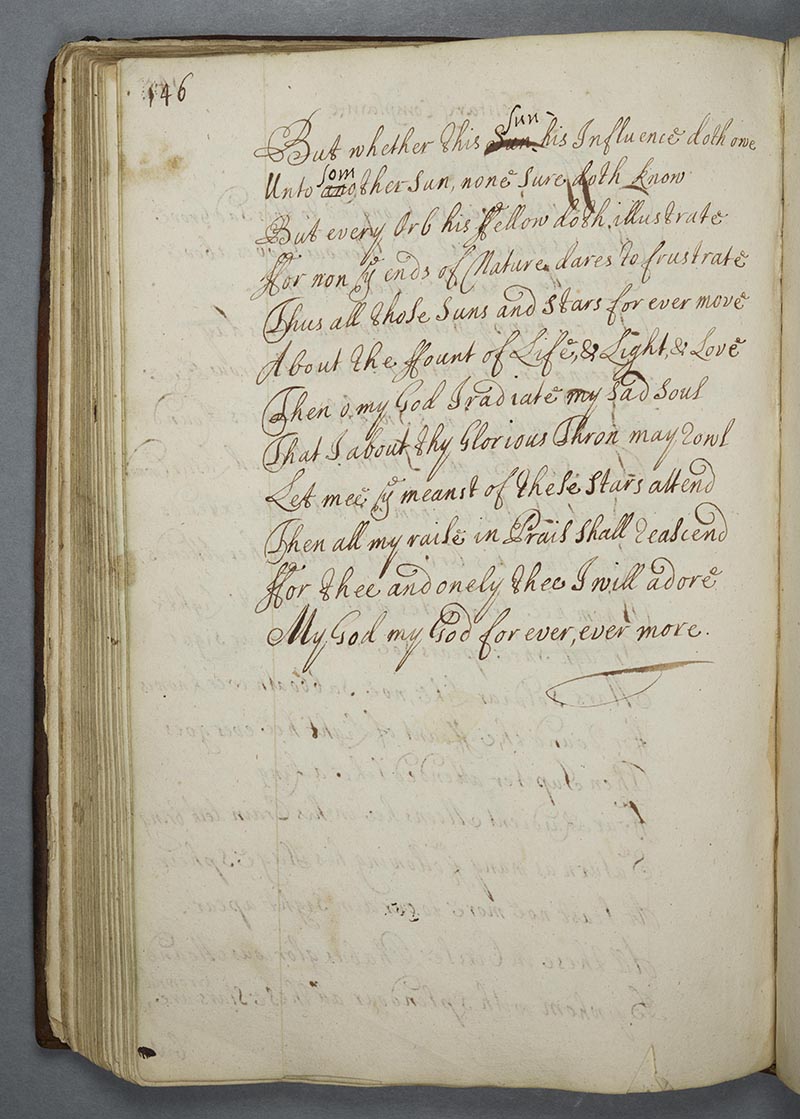 146
But whether this Sun his Influence doth owe
Unto som other Sun, none sure doth know
But every Orb his ffellow doth illustrate
ffor non yͤ ends of Nature dares to frustrate
Thus all those Suns and Stars for ever move
About the ffount of Life, & Light, & Love
Then o my God Iradiate my sad soul
That I about thy Glorious Thron may Rowl
Let mee yͤ meanst of these Stars attend
Then all my raise in Prais shall Reascend
ffor thee and onely thee I will adore
My God my God for ever, ever more.